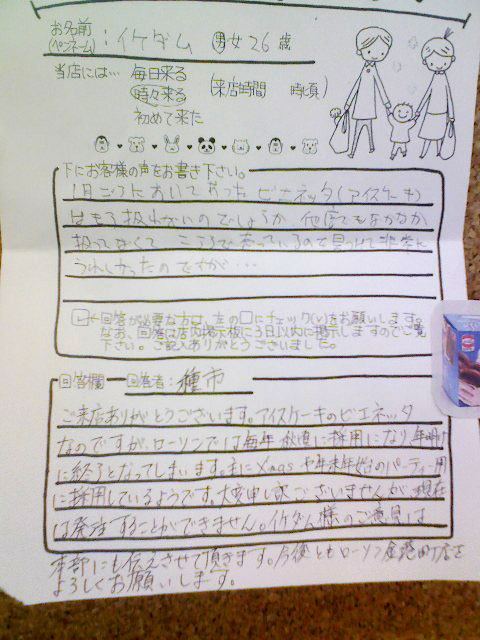 お名前
(ペンネーム): イケダム 男 女 26 歳
当店には… 毎日来る
時々来る (来店時間 時頃)
初めて来た
下にお客様の声をお書き下さい。
1月ごろにおいてあった ビエネッタ(アイスケーキ)
はもう扱わないのでしょうか 他店でもなかなか
扱ってなくて ここで売っているので見つけて非常に
うれしかったのですが…
←回答が必要な方は、左の□にチェック(✓)をお願いします。
なお、回答は店内掲示板に3日以内に掲示しますのでご覧
下さい。ご記入ありがとうございました。
回答欄 回答者: 種市
ご来店ありがとうございます。アイスケーキのビエネッタ
なのですが、ローソンでは毎年 秋頃に採用になり 年明け
に終了となってしまいます。主にXmasや年末年始のパーティー用
に採用しているようです。大変申し訳ございませんが、現在
は発注することができません。イケダム様のご意見は
本部にも伝えさせて頂きます。今後ともローソン 金港町店を
よろしくお願いします。